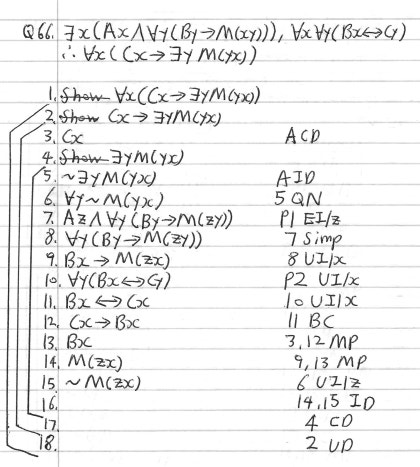 Q66. ∃x(Ax∧∀y(By→M(xy))), ∀x∀y(Bx↔Cy)
∴ ∀x(Cx→∃yM(yx))
1. Show ∀x(Cx→∃yM(yx))
2. Show Cx→∃yM(yx)
3. Cx ACD
4. Show ∃yM(yx)
5. ~∃yM(yx) AID
6. ∀y~M(yx) 5 QN
7. Az∧∀y(By→M(zy)) P1 EI/z
8. ∀y(By→M(zy)) 7 Simp
9. Bx→M(zx) 8 UI/x
10. ∀y(Bx↔Cy) P2 UI/x
11. Bx↔Cx 10 UI/x
12. Cx→Bx 11 BC
13. Bx 3,12 MP
14. M(zx) 9,13 MP
15. ~M(zx) 6 UI/z
16. 14,15 ID
17. 4 CD
18. 2 UD